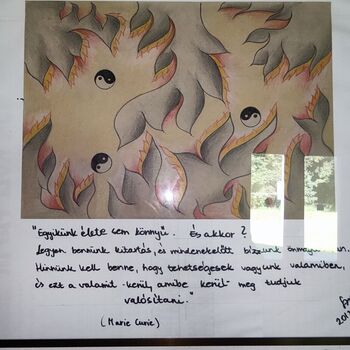 "Egyikünk élete sem könnyű. És akkor?
Legyen bennünk kitartás, és mindenekelőtt bízzunk
Hinnünk kell benne, hogy tehetségesek vagyunk valamiben,
és ezt a valamit -kerül, amibe kerül- meg tudjuk
valósítani."
(Marie Curie)